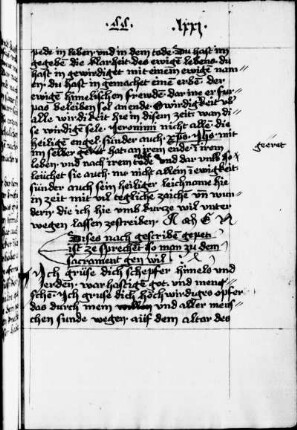 lxxi
rede in leben und in dem tode Du hast im
gegeben die klarheit des ewigen lebens du
hast in gewirdiget mit einem ewigen nam
en. du hast in gemachet einen erben der
ewigen himelischen frewden dar inne er fur
bas beleiben sol an ende. O wirdikeit ub
alle wirdikeit hie in disen zeit wan di
se wirdigen sele. Jeronimi nicht allein die
heiligen engel sunder auch xps. ihs mit
im selber hat an irem ende in irem
geerret
leben und nach irem tode und dar umb so
leuchet sie auch nu nicht allein in ewigkeit
sunder auch sein heiliger leichnam hie
in zeit mit vil tegliche zaichen und wun
dern die ich hie umb kurze wil unter
wegen lassen zeschreiben
Dises nach gescriben gepet
ist ze sprechen so man zu dem
sacrament gen wil
Ich gruse dich schepfer himels und
erden. warhaftiger got. und mens
sche. Ich gruse dich hochwirdiges opfer
das durch mein willen und aller mens
chen sunde wegen. auf dem altar des